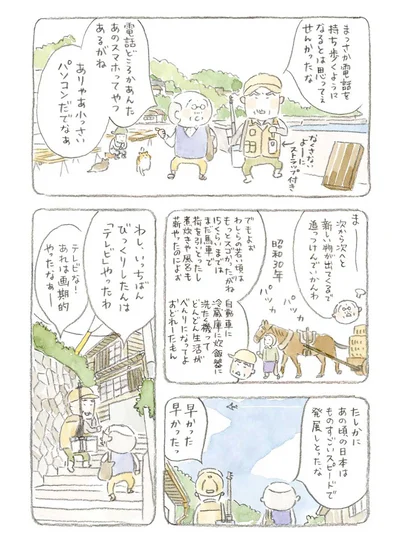 まっさか電話を
持ち歩くように
なるとは思ってえ
せんかったな
なくさない
よーに
ストラップ付き
電話どころかあんた
あのスマホってやつ
あるがね
ありゃあ小っさい
パソコンだでなぁ
まー
次から次へと
新しい物が出てくるで
追っつけんでいかんわ
でもよぉ
わしらの若い頃は
もっとスゴかったがね
15くらいまでは
まだ馬車で
荷を引いとったし
煮炊きや風呂も
薪やったのによぉ
昭和30年
パッカ
パッカ
自動車に
冷蔵庫に炊飯器に
洗たく機って
どんどん生活が
べんりになってよ
おどれーたもん
わし、いっちばん
びっくりしたんは
「テレビ」やったわ
テレビな!
あれは画期的
やったなぁー
たしかに
あの頃の日本は
ものすごいスピードで
発展しとったな
早かった
早かったっ